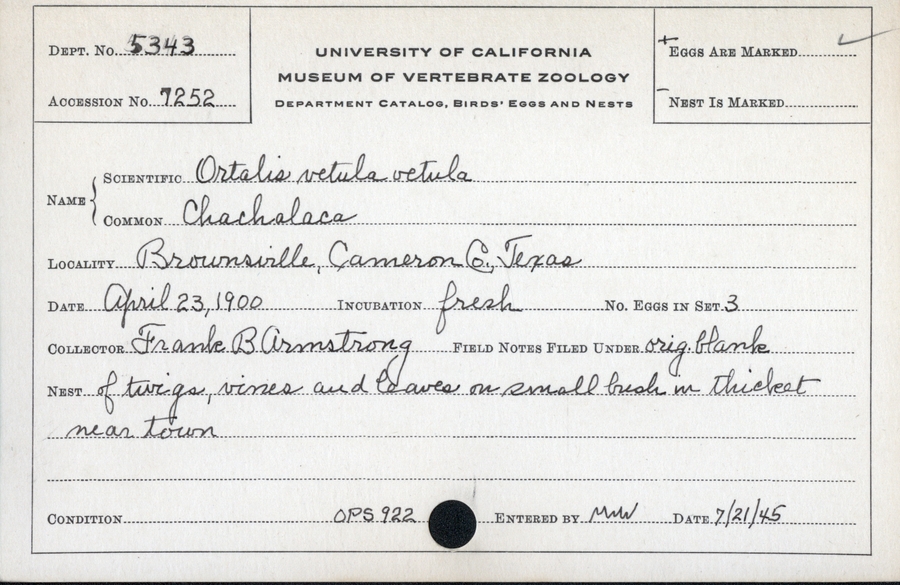 DEPT. No. 5343
ACCESSION No. 7252
UNIVERSITY OF CALIFORNIA
MUSEUM OF VERTEBRATE ZOOLOGY
DEPARTMENT CATALOG, BIRDS' EGGS AND NESTS
+ EGGS ARE MARKED ✓
- NEST IS MARKED
NAME { SCIENTIFIC Ortalis vetula vetula
COMMON Chachalaca
LOCALITY Brownsville, Cameron Co., Texas
DATE April 23, 1900 INCUBATION fresh NO. EGGS IN SET 3
COLLECTOR Frank B Armstrong FIELD NOTES FILED UNDER orig. blank
NEST of twigs, vines and leaves on small bush in thicket
near town
CONDITION OPS 922 ENTERED BY MWW DATE 7/21/45